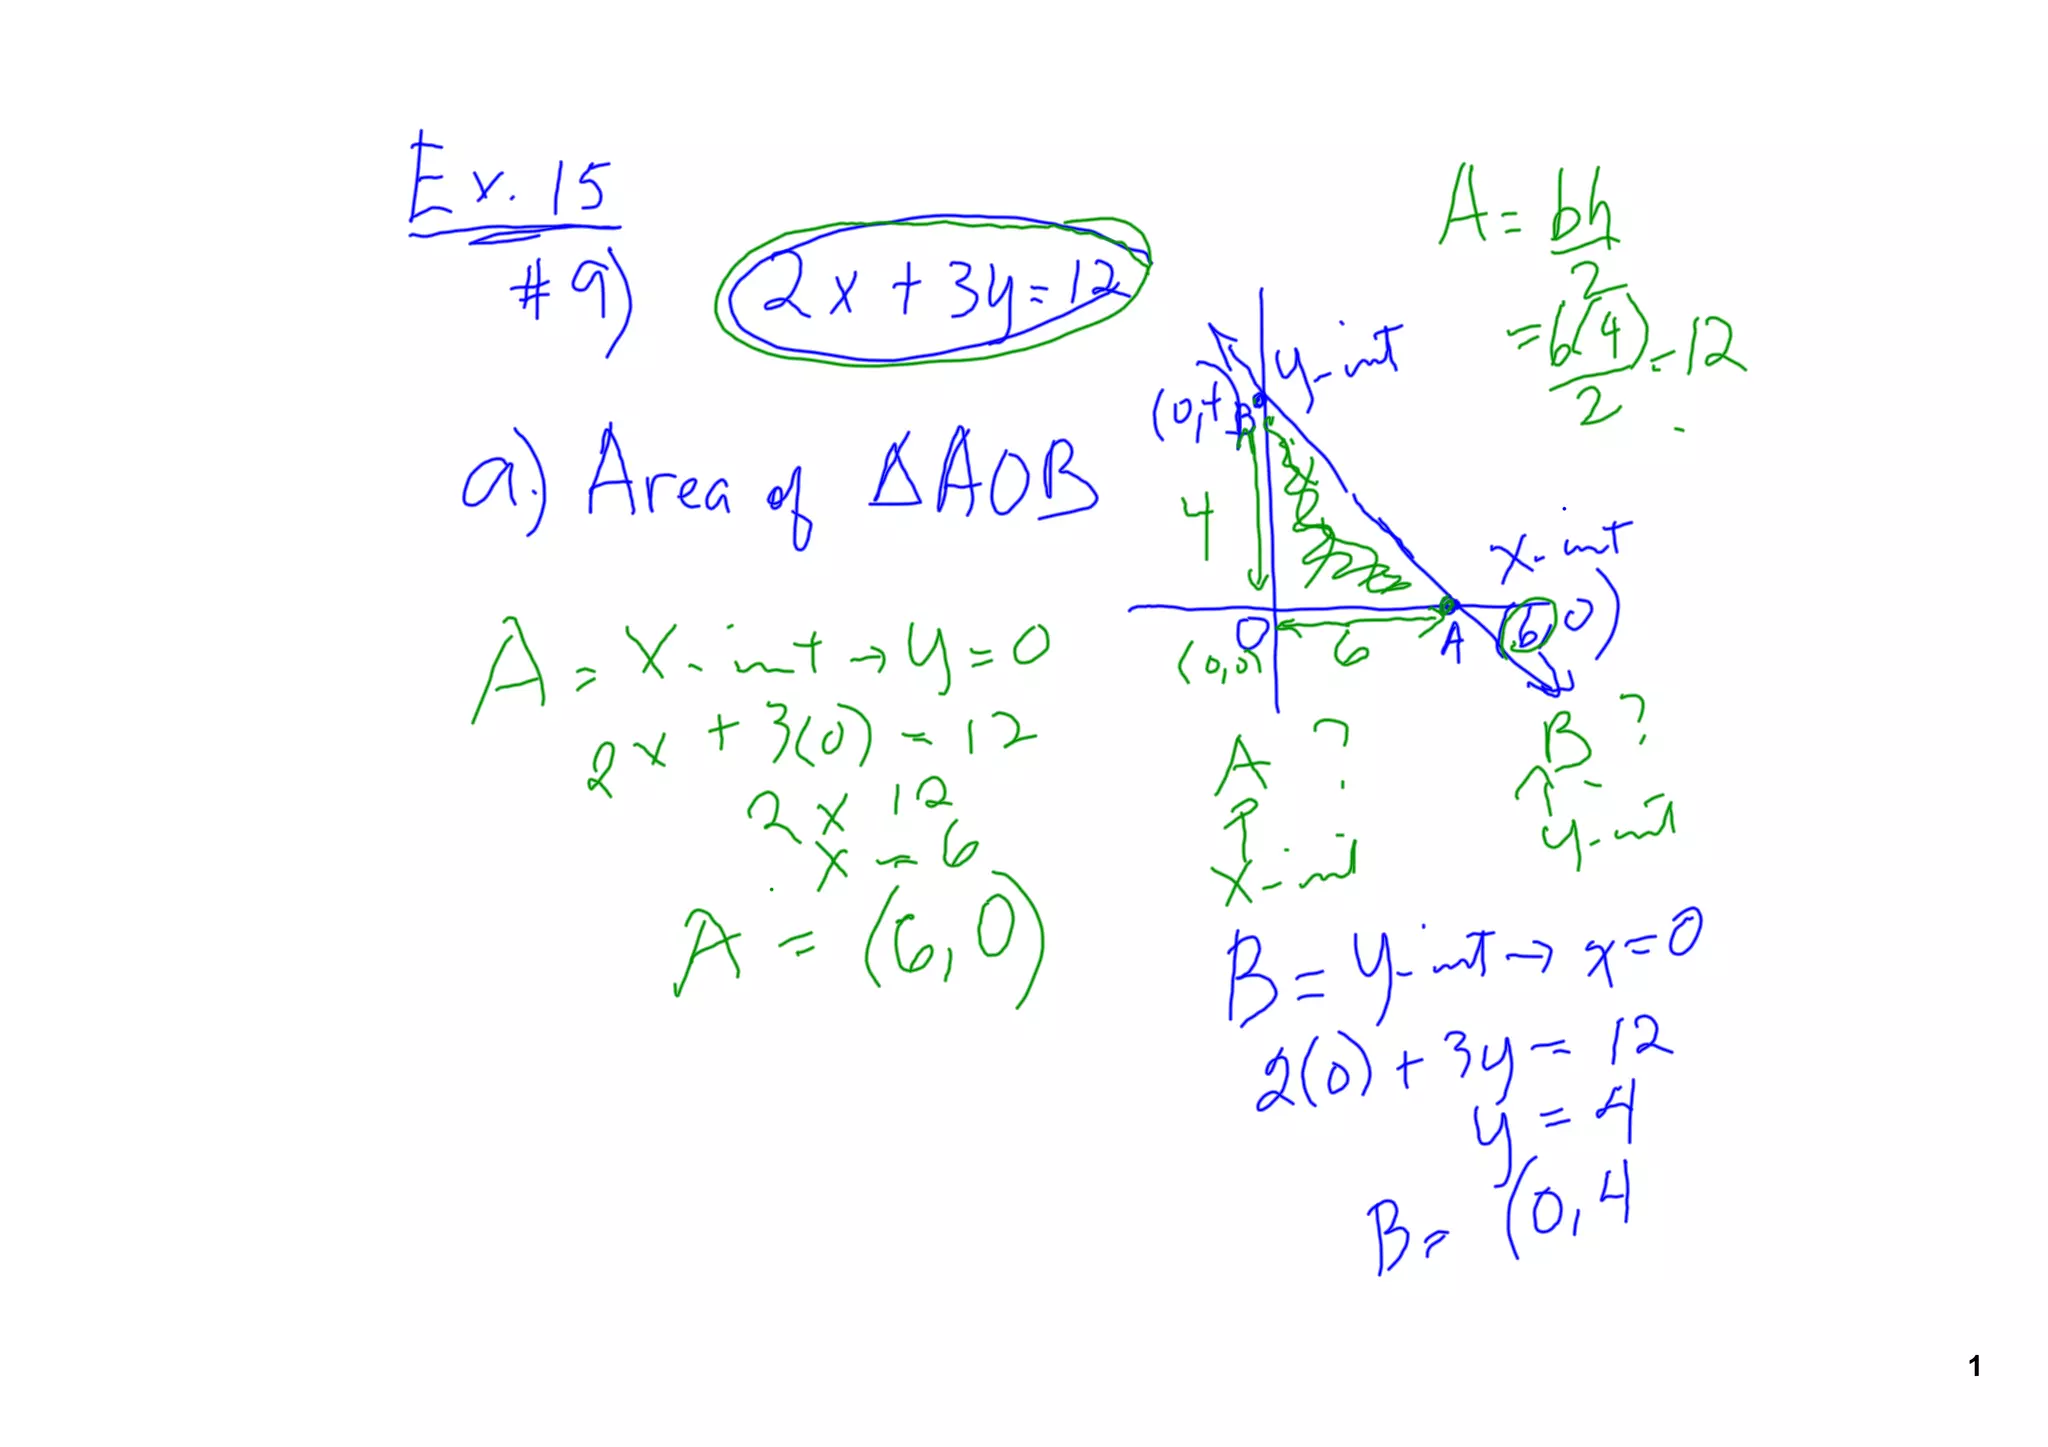 Ex. 15
#9)
2x + 3y = 12
a.) Area of ΔAOB
A = x-int → y = 0
2x + 3(0) = 12
2x 12
x = 6
A = (6, 0)
A = bh
2
= 6(4) = 12
2
y-int
(0, 4)
B
4
x-int
O
(0,0)
6
A
(6, 0)
A ?
↑
x-int
B ?
↑
y-int
B = y-int → x = 0
2(0) + 3y = 12
y = 4
B = (0, 4
1